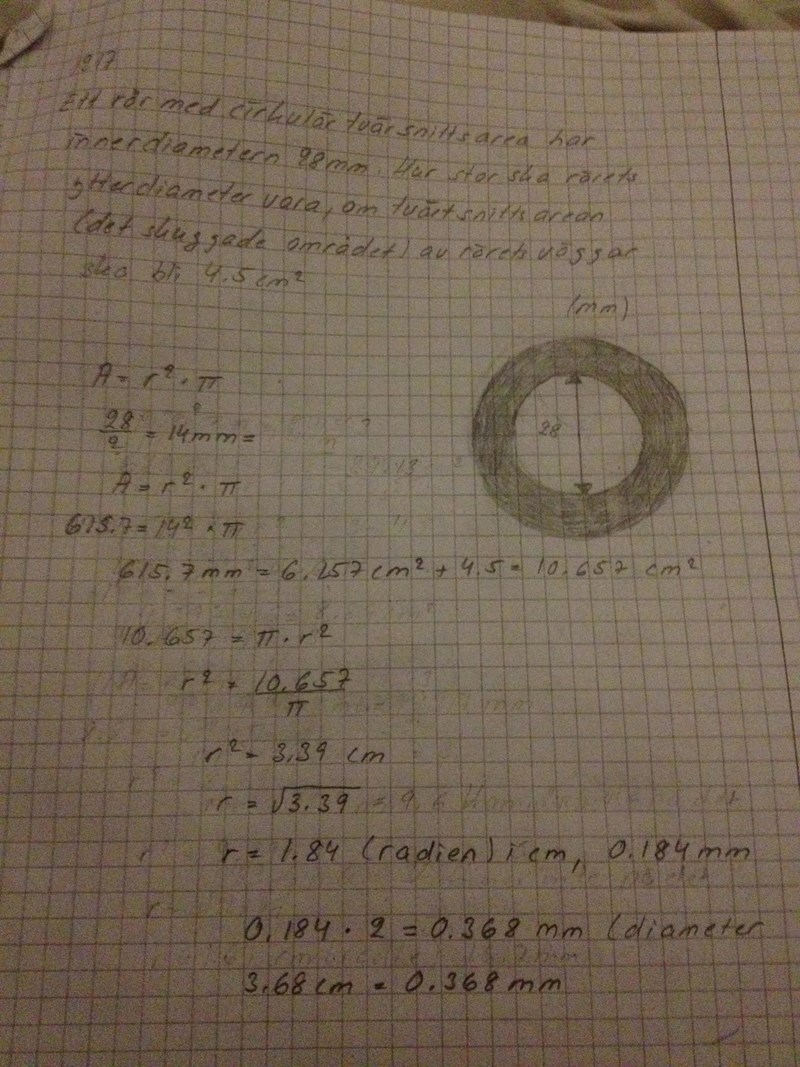 1217
Ett rör med cirkulär tvärsnittsarea har
innerdiametern 28mm. Hur stor ska rörets
ytterdiameter vara, om tvärtsnittsarean
(det skuggade området) av rörets väggar
ska bli 4.5 cm²
(mm)
28
A = r² · π
28/2 = 14mm =
A = r² · π
615.7 = 14² · π
615.7 mm = 6.157 cm² + 4.5 = 10.657 cm²
10.657 = π · r²
r² = 10.657/π
r² = 3.39 cm
r = √3.39
r = 1.84 (radien) i cm, 0.184 mm
0.184 · 2 = 0.368 mm (diameter
3.68 cm = 0.368 mm